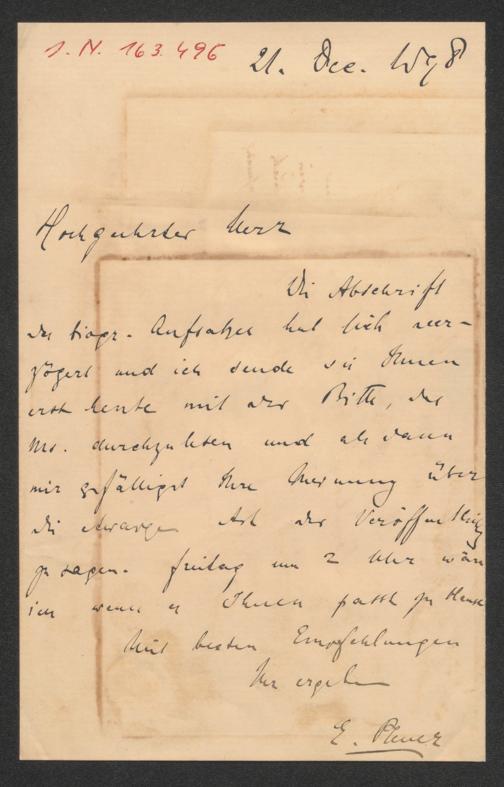 I. N. 163.496
21. Dec. 1898
Hochgeehrter Herr
Die Abschrift
des biogr. Aufsatzes hat sich ver-
zögert und ich sende sie Ihnen
erst heute mit der Bitte, das
Ms. durchzulesen und als dann
mir gefälligst Ihre Meinung über
die etwaige Art der Veröffentlichg
zu sagen. Freitag um 2 Uhr wäre
ich wenn es Ihnen passt zu Hause
Mit besten Empfehlungen
Ihr ergeben
E.